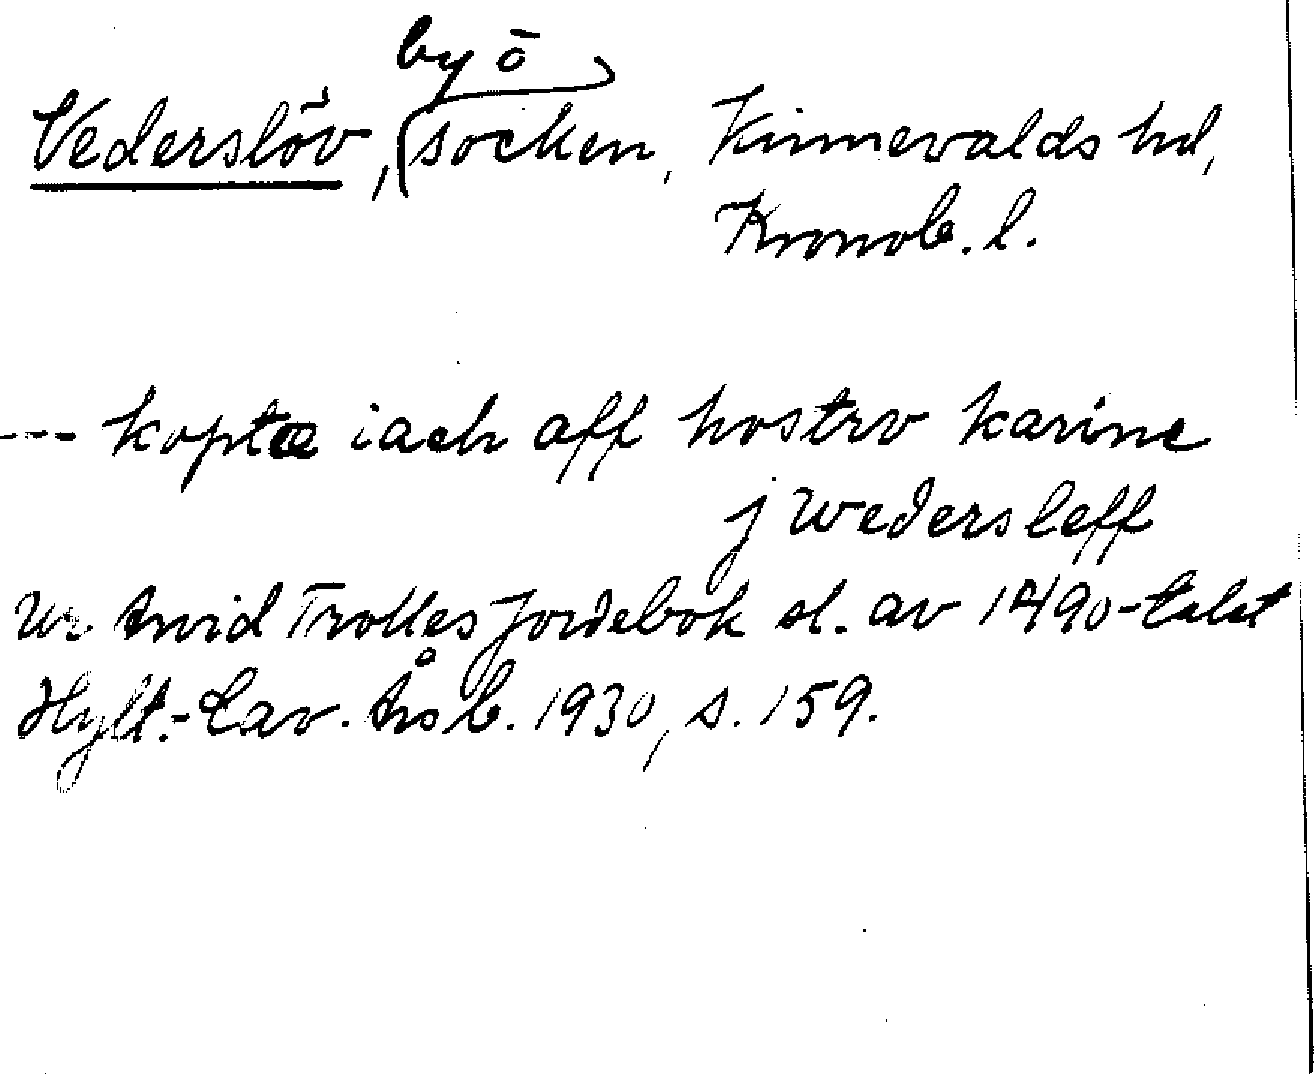 by ō
Vederslöv, (socken, Kinnevalds hd,
Kronob. l.
--- koptæ iach aff hostrv karine
j wedersleff
Ur Arvid Trolles Jordebok sl. av 1490-talet
Hylt.-Cav. Årsb. 1930, s. 159.